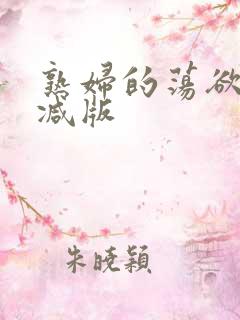 熟婦的蕩欲
减版
朱曉穎